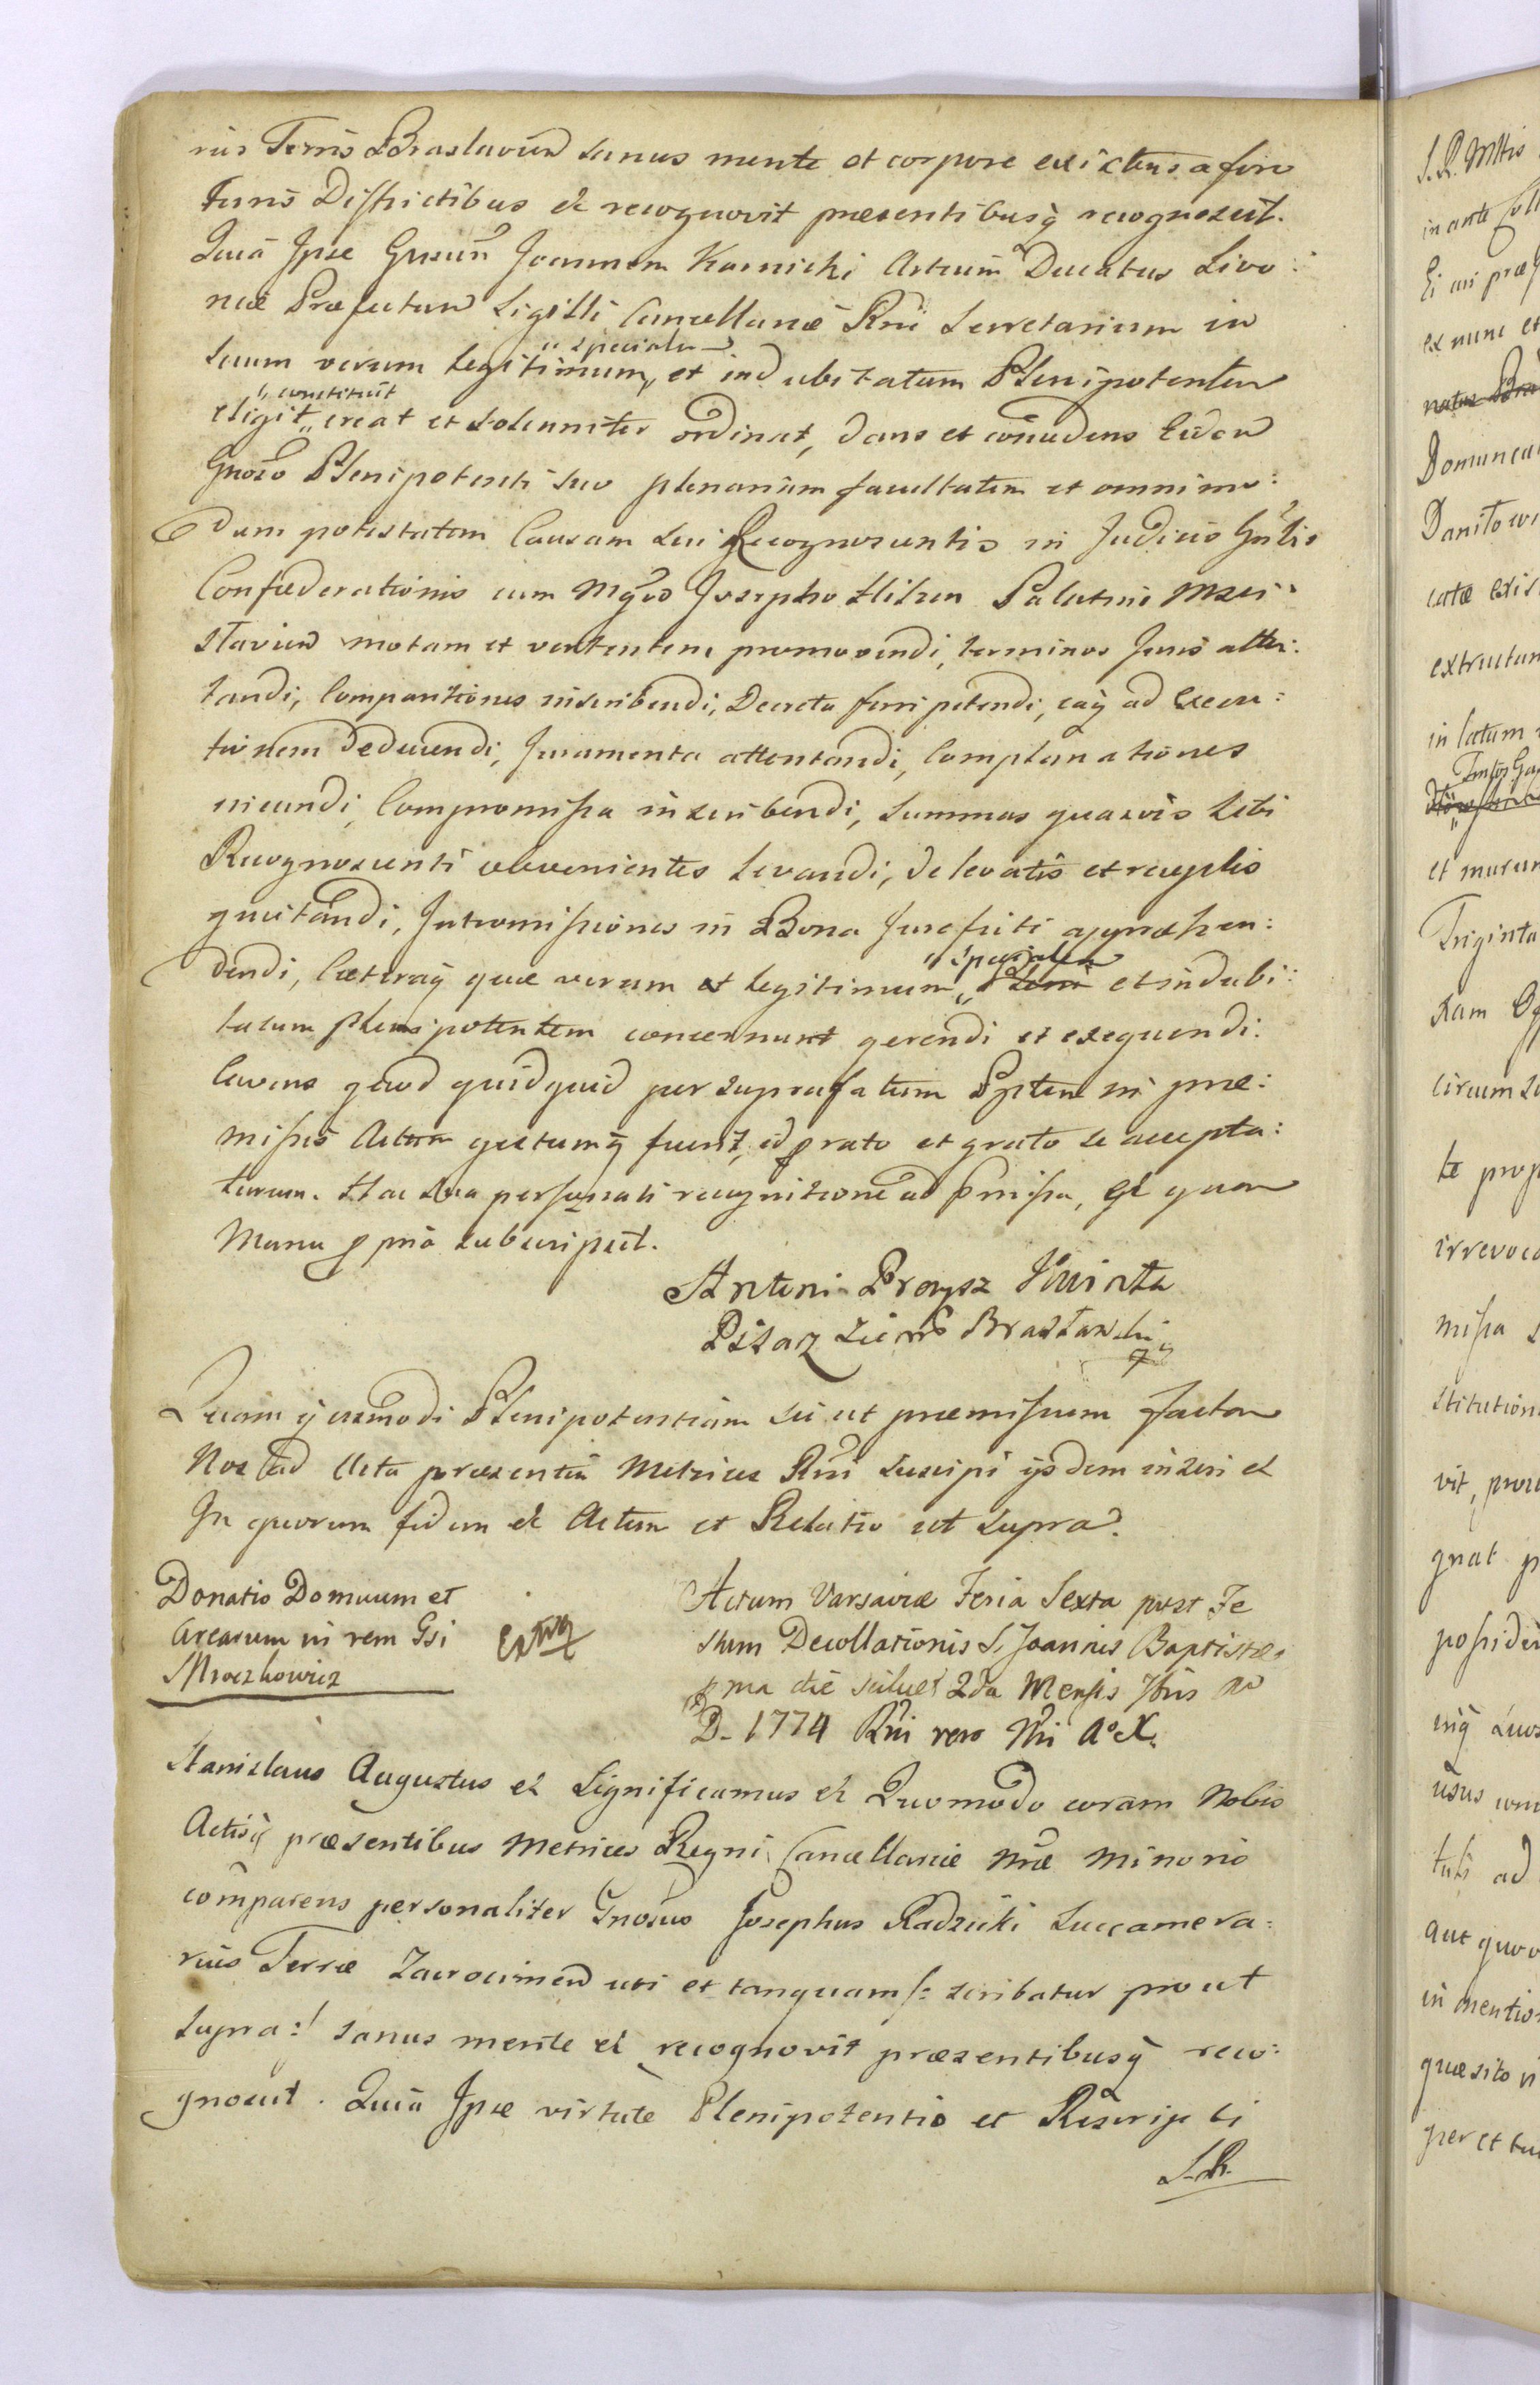 rius Terris Braslavien sanus mente et corpore existens a foro
terris Districtibus et recognovit præsentibusq recognoscit.
Quia Ipse Gnsum Joannem Karnicki Actuum Ducatus Livo:
niæ Præfectum Sigilli Cancellariæ Rni Secretarium in
suum verum legitimum „ specialem et indubitatum Plenipotentem
eligit „ constituit creat et solenniter ordinat, dans et concedens Eidem
Gnoso Plenipotenti suo plenariam facultatem et omnimo:
dam potestatem Causam sui Recognoscentis in Judiciis Gnlis
Confæderationis cum Mgco Josepho Hilzen Palatino Msci:
slavien motam et vertentem promovendi, terminos Juris atten:
tandi, Comparitiones inscribendi, Decreta ferri petendi, eaq ad Execu:
tionem deducendi, Juramenta attentandi, Complanationes
ineundi, Compromissa inscribendi, summas quasvis sibi
Recognoscenti obvenientes levandi, de levatis et receptis
quietandi, Intromissiones in Bona Jurefacti apprehen:
dendi, Cæteraq quæ verum et legitimum „ specialem et indubi:
tatum plenipotentem concernunt gerendi et exequendi.
Cavens quod quidquid per suprafatum Ppten in præ:
missis Actum gestumq fuerit, id p rato et grato se accepta:
turum. Hac sua personali recognitione ad pmissa, et quam
Manu p pria subscripsit.
Antoni Prozysz Kwinta
Pisarz Ziems Brasławski
Quam ejusmodi Plenipotentiam sic ut præmissum factam
Nos ad Acta præsentia Metrices Rni suscipi ijsdem inseri et
In quorum fidem et Actum et Relatio ut supra.
Donatio Domuum et
Arearum in rem Gsi
Mroczkowicz
Extrq
Actum Varsaviæ Feria Sexta post Fe
stum Decollationis S. Joannis Baptistæ
pma die scilicet 2da Mensis 7bris Ao
D. 1774 Rni vero Nri Ao X.
Stanislaus Augustus et Significamus et Quomodo coram Nobis
Actisq præsentibus Metrices Regni Cancellariæ Nræ Minoris
comparens personaliter Gnosus Josephus Radzicki Succamera:
rius Terræ Zacrocimen uti et tanquam /: scribatur prout
supra :/ sanus mente et recognovit præsentibusq reco:
gnoscit. Quia Ipse virtute Plenipotentis et Rescripti
S.R.
S.R. Mttis
in ante
Ei uti præ
ex nunc et
Domuncu
Daniłowi
catæ exis
extructam
in latum
et murum
Triginta
ram
circumsc
te prop
irrevoca
missa s
stitution
vit,
gnat p
possiden
usq suos
usus
tuti ad
aut quov
in mentio
quæsito
per et